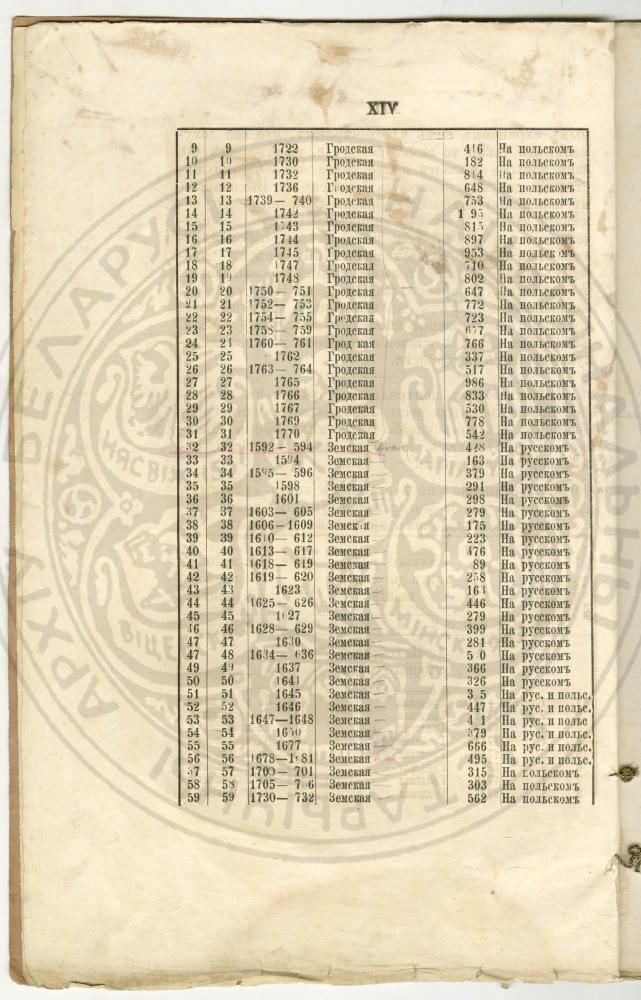 XIV
9 9 1722 Гродская 416 На польскомъ
10 10 1730 Гродская 182 На польскомъ
11 11 1732 Гродская 814 На польскомъ
12 12 1736 Гродская 648 На польскомъ
13 13 1739— 740 Гродская 753 На польскомъ
14 14 1742 Гродская На польскомъ
15 15 1743 Гродская 815 На польскомъ
16 16 1744 Гродская 897 На польскомъ
17 17 1745 Гродская 953 На польскомъ
18 18 1747 Гродская 710 На польскомъ
19 19 1748 Гродская 802 На польскомъ
20 20 1750— 751 Гродская 647 На польскомъ
21 21 1752— 753 Гродская 772 На польскомъ
22 22 1754— 755 Гродская 723 На польскомъ
23 23 1758— 759 Гродская На польскомъ
24 24 1760— 761 Гродская 766 На польскомъ
25 25 1762 Гродская 337 На польскомъ
26 26 1763— 764 Гродская 517 На польскомъ
27 27 1765 Гродская 986 На польскомъ
28 28 1766 Гродская 833 На польскомъ
29 29 1767 Гродская 530 На польскомъ
30 30 1769 Гродская 778 На польскомъ
31 31 1770 Гродская 542 На польскомъ
32 32 1592— 594 Земская 428 На русскомъ
33 33 1594 Земская 163 На русскомъ
34 34 1595— 596 Земская 379 На русскомъ
35 35 1598 Земская 291 На русскомъ
36 36 1601 Земская 298 На русскомъ
37 37 1603— 605 Земская 279 На русскомъ
38 38 1606—1609 Земская 175 На русскомъ
39 39 1610— 612 Земская 223 На русскомъ
40 40 1613— 617 Земская 476 На русскомъ
41 41 1618— 619 Земская 89 На русскомъ
42 42 1619— 620 Земская 258 На русскомъ
43 43 1623 Земская 163 На русскомъ
44 44 1625— 626 Земская 446 На русскомъ
45 45 1627 Земская 279 На русскомъ
46 46 1628— 629 Земская 399 На русскомъ
47 47 1630 Земская 281 На русскомъ
47 48 1634— 636 Земская 5 0 На русскомъ
49 49 1637 Земская 366 На русскомъ
50 50 1641 Земская 326 На русскомъ
51 51 1645 Земская 3 5 На рус. и польс.
52 52 1646 Земская 447 На рус. и польс.
53 53 1647—1648 Земская 4 1 На рус. и польс
54 54 1650 Земская 379 На рус. и польс.
55 55 1677 Земская 666 На рус. и польс.
56 56 1678—1681 Земская 495 На рус. и польс.
57 57 1700— 701 Земская 315 На польскомъ
58 58 1705— 706 Земская 303 На польскомъ
59 59 1730— 732 Земская 562 На польскомъ